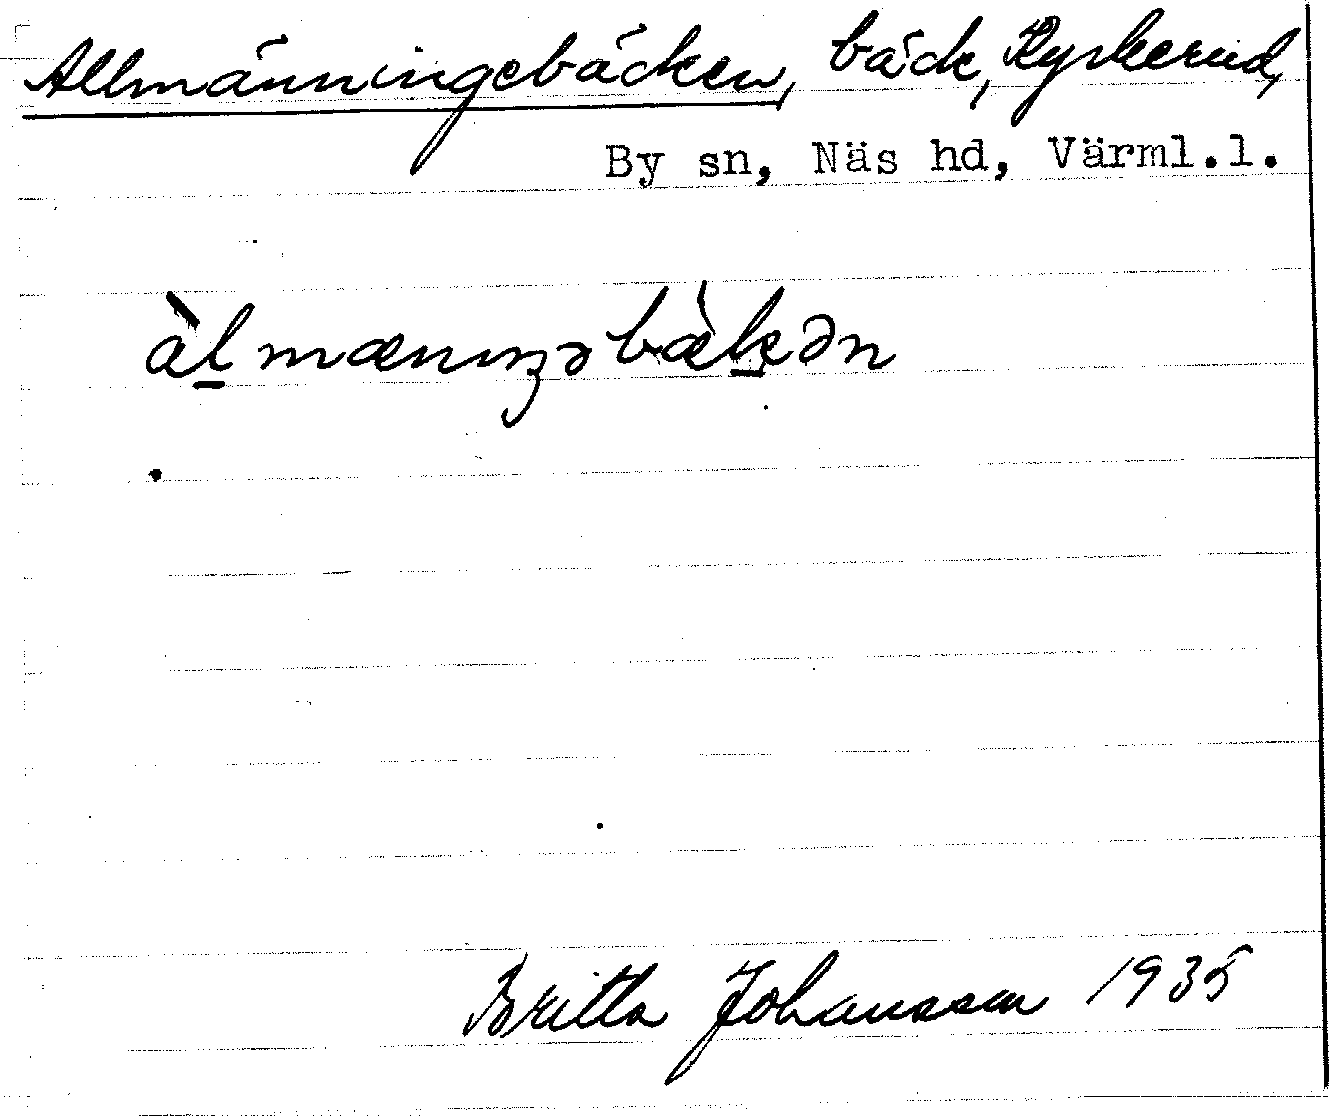 Allmänningebäcken, bäck, Ryrkerud,
By sn, Näs hd, Värml.l.
àl̲mænıŋəbæ̀k̲ən
Britta Johansson 1935